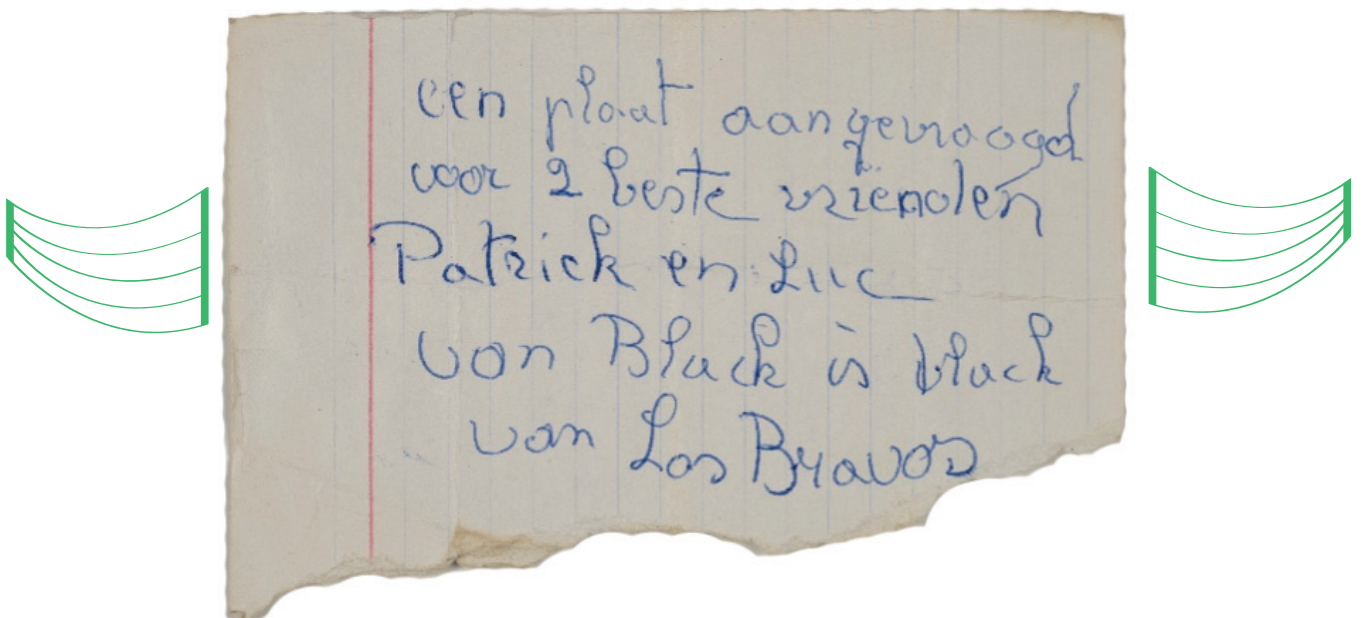 een plaat aangevraagd
voor 2 beste vrienden
Patrick en Luc
van Black is black
van Los Bravos